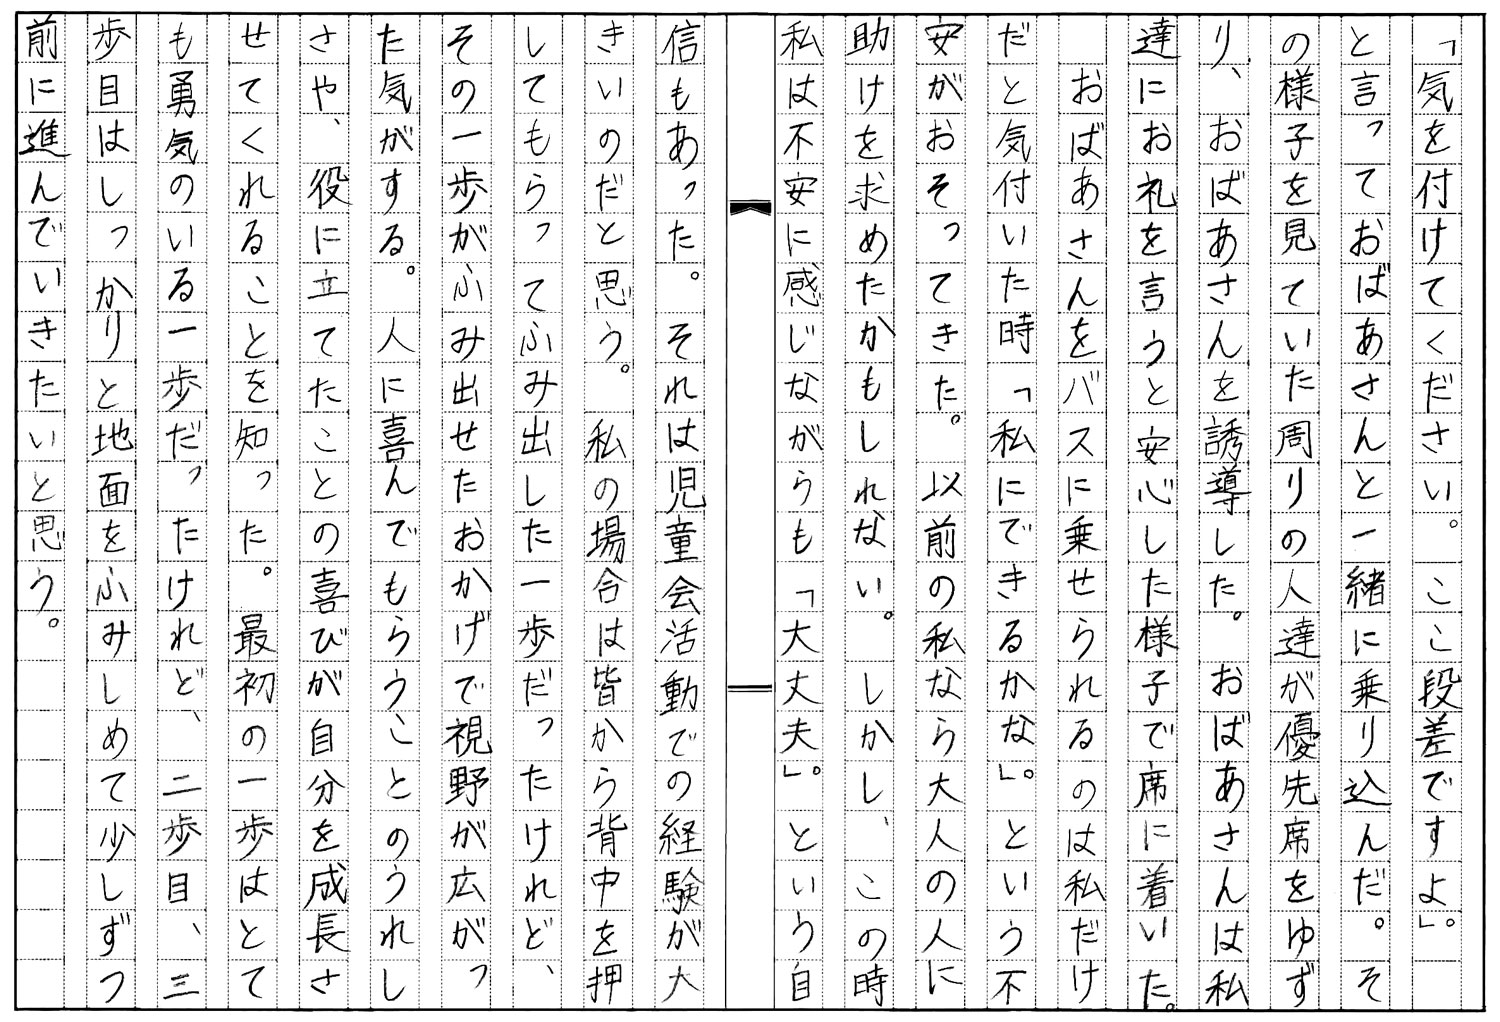 「気を付けてください。ここ段差ですよ」。
と言っておばあさんと一緒に乗り込んだ。そ
の様子を見ていた周りの人達が優先席をゆず
り、おばあさんを誘導した。おばあさんは私
達にお礼を言うと安心した様子で席に着いた。
おばあさんをバスに乗せられるのは私だけ
だと気付いた時「私にできるかな」。という不
安がおそってきた。以前の私なら大人の人に
助けを求めたかもしれない。しかし、この時
私は不安に感じながらも「大丈夫」。という自
信もあった。それは児童会活動での経験が大
きいのだと思う。私の場合は皆から背中を押
してもらってふみ出した一歩だったけれど、
その一歩がふみ出せたおかげで視野が広がっ
た気がする。人に喜んでもらうことのうれし
さや、役に立てたことの喜びが自分を成長さ
せてくれることを知った。最初の一歩はとて
も勇気のいる一歩だったけれど、二歩目、三
歩目はしっかりと地面をふみしめて少しずつ
前に進んでいきたいと思う。